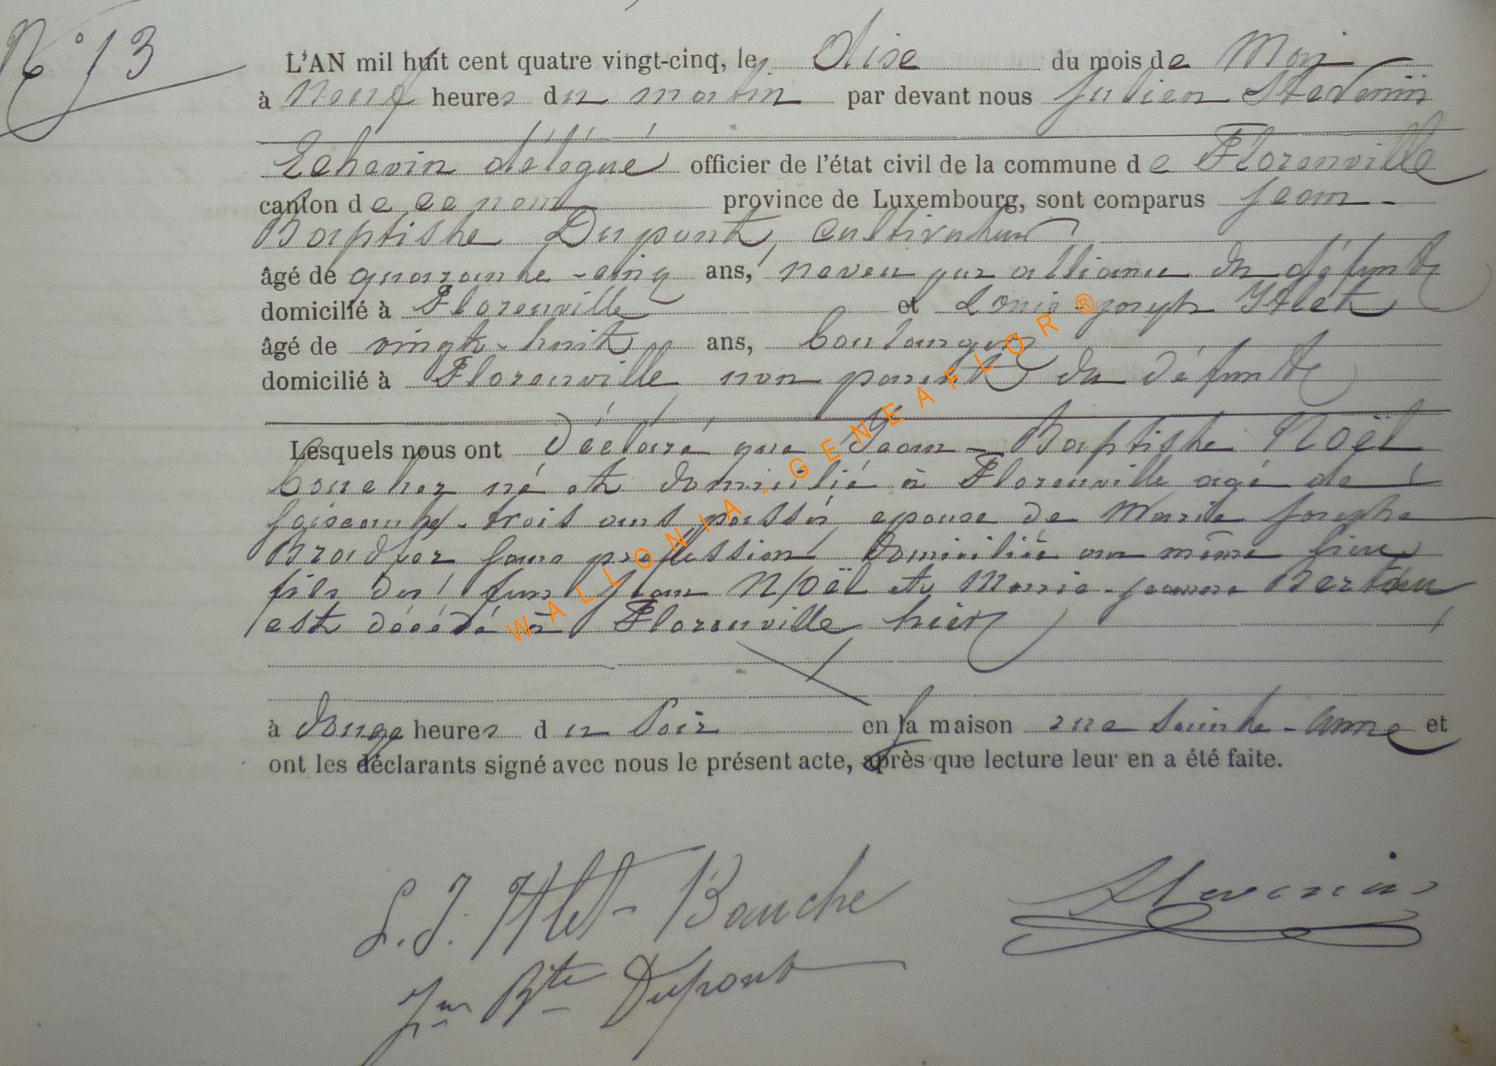 N° 13
L'AN mil huit cent quatre vingt-cinq, le dise du mois de Mai
à Neuf heures du matin par devant nous Julien Stevenin
Echevin délégué officier de l'état civil de la commune de Florenville
canton de ce nom province de Luxembourg, sont comparus Jean-
Baptiste Dupont, cultivateur
âgé de quarante-cinq ans, neveu par alliance du défunt
domicilié à Florenville et Louis joseph Hlet
âgé de vingt-huit ans, boulanger
domicilié à Florenville non parent du défunt
Lesquels nous ont déclaré que Jean-Baptiste Noël
né et domicilié à Florenville agé de
soisante-trois ans passés epouse de Marie Josephe
sans profession domiciliée au même lieu
fils des feus Jean Noël et Marie-jeanne
est décédé à Florenville hier
à douze heures du soir en la maison rue Sainte-Anne et
ont les déclarants signé avec nous le présent acte, après que lecture leur en a été faite.
L. J. Hlet-Bouche
Stevenin
Jn Bte Dupont
WALLONIA-GENEAFLOR®